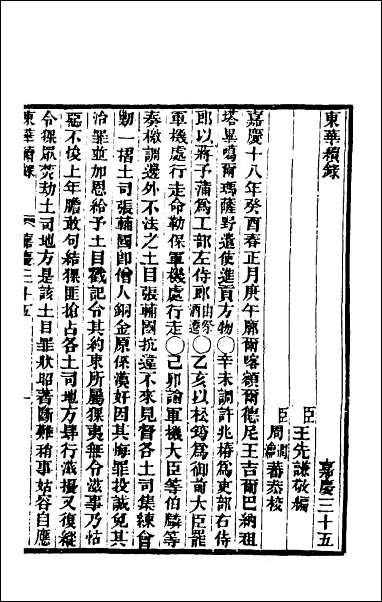 東華續錄
嘉慶三十五
臣王先謙敬編
臣周潤蕃周瀹蕃恭校
嘉慶十八年癸酉春正月庚午廓爾喀額爾德尼王吉爾巴納祖
塔畢噶爾瑪薩野遣使進貢方物〇辛未調許兆椿爲吏部右侍
郎以蔣予蒲爲工部左侍郎由倉場遷〇乙亥以松筠爲御前大臣罷
軍機處行走命勒保軍機處行走〇己卯諭軍機大臣等伯麟等
奏檄調邊外不法之土目張輔國抗違不來見督各土司集練會
勦一摺土司張輔國卽僧人銅金原係漢奸因其悔罪投誠免其
治罪並加恩給予土目戳記令其約束所屬猓夷無令滋事乃怙
惡不悛上年膽敢句結猓匪搶占各土司地方肆行滋擾又復縱
令猓眾焚劫土司地方是該土目罪狀昭著斷難稍事姑容自應
東華續錄
嘉慶三十五
一